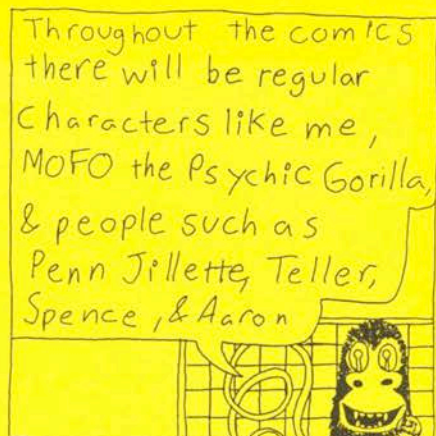 Throughout the comics
there will be regular
Characters like me,
MOFO the Psychic Gorilla,
& people such as
Penn Jillette, Teller,
Spence, & Aaron